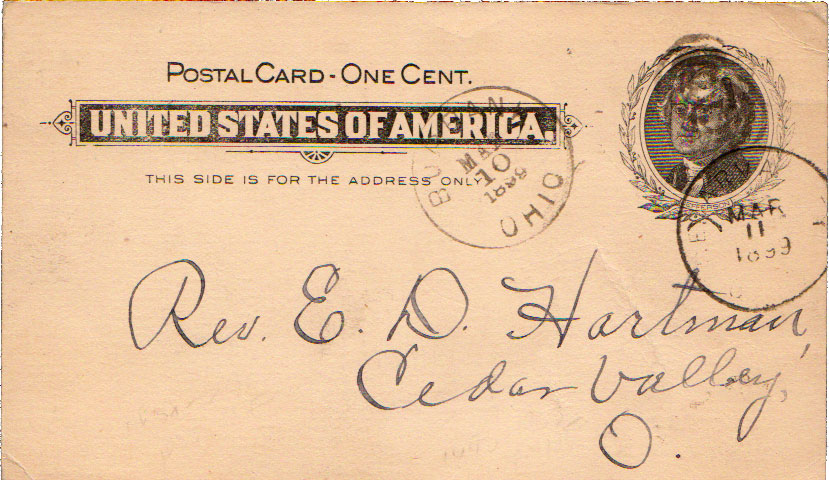 POSTAL CARD - ONE CENT.
UNITED STATES OF AMERICA.
THIS SIDE IS FOR THE ADDRESS ONLY.
MAR
10
1899
OHIO
JEFFERSON
MAR
11
1899
Rev. E. D. Hartman,
Cedar Valley,
O.